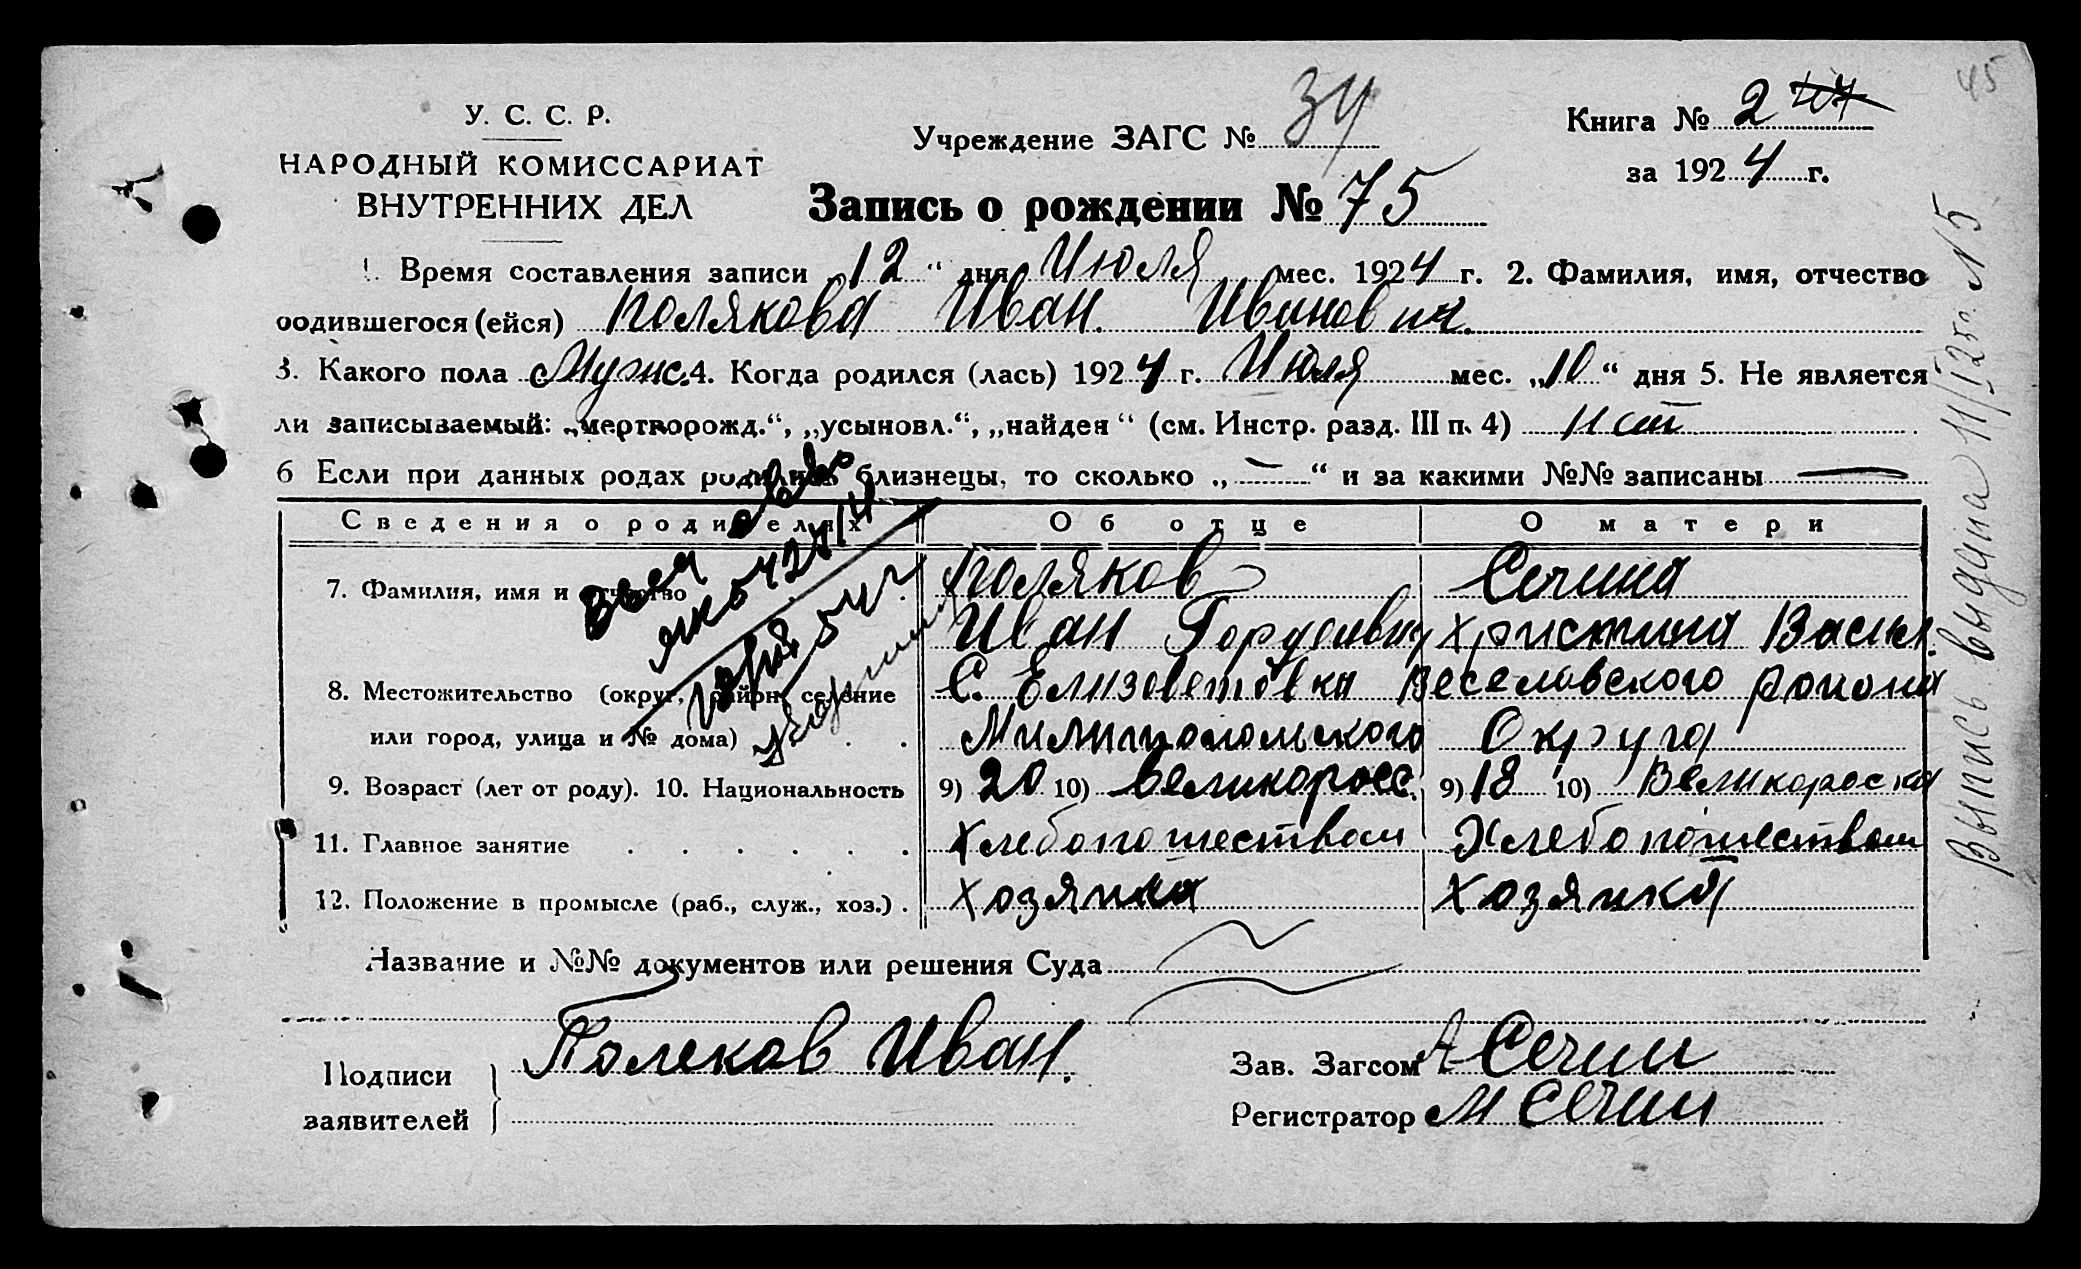 45
У. С. С. Р.
НАРОДНЫЙ КОМИССАРИАТ
ВНУТРЕННИХ ДЕЛ
Учреждение ЗАГС № 34
Книга № 2
за 1924 г.
Запись о рождении № 75
1. Время составления записи „12“ дня Июля мес. 1924 г. 2. Фамилия, имя, отчество
родившегося (ейся) Полякова Иван. Иванович.
3. Какого пола Мужс. 4. Когда родился (лась) 1924 г. Июля мес. „10“ дня 5. Не является
ли записываемый: „мертворожд.“, „усыновл.“, „найден“ (см. Инстр. разд. III п. 4) нет
6 Если при данных родах родились близнецы, то сколько „—“ и за какими №№ записаны —
Сведения о родителях Об отце О матери
7. Фамилия, имя и отчество Поляков Сечина
Иван Гордеевич Христина Васил.
8. Местожительство (округ, район, селение С. Елизаветовка Веселавского района
или город, улица и № дома) Милитопольского Округа
9. Возраст (лет от роду). 10. Национальность 9) 20 10) великоросс. 9) 18 10) Великороска
11. Главное занятие Хлебопошеством Хлебопошеством
12. Положение в промысле (раб., служ., хоз.) Хозяика Хозяика
Название и №№ документов или решения Суда
Подписи заявителей Полеков Иван.
Зав. Загсом А Сечин
Регистратор М Сечин
Выпись выдана 11/I 25г. N 5